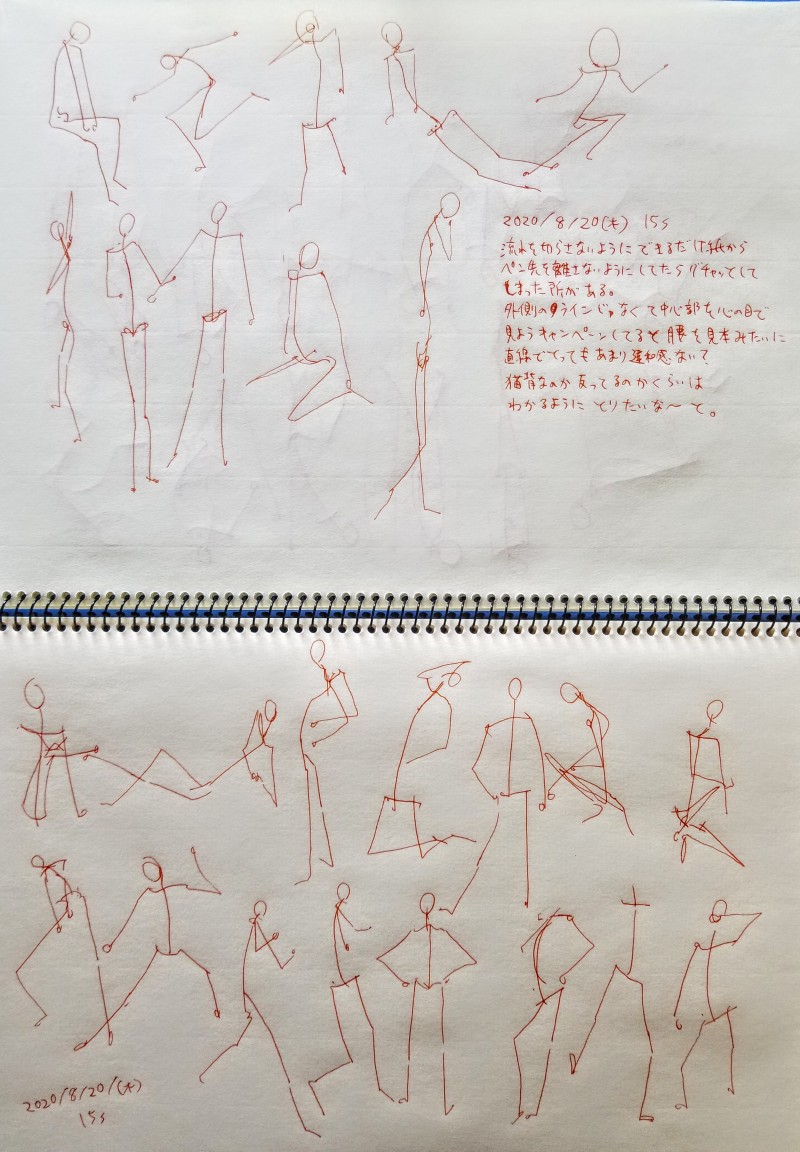 2020/8/20(木) 15s
流れを切らさないように できるだけ紙から
ペン先を離さないようにしてたらグチャッとして
しまった所がある。
外側のラインじゃなくて中心部を心の目で
見ようキャンペーンしてると 腰を見本みたいに
直線でとってもあまり違和感ない?
猫背なのか反ってるのかくらいは
わかるように とりたいな〜 と。
2020/8/20/(木)
15s